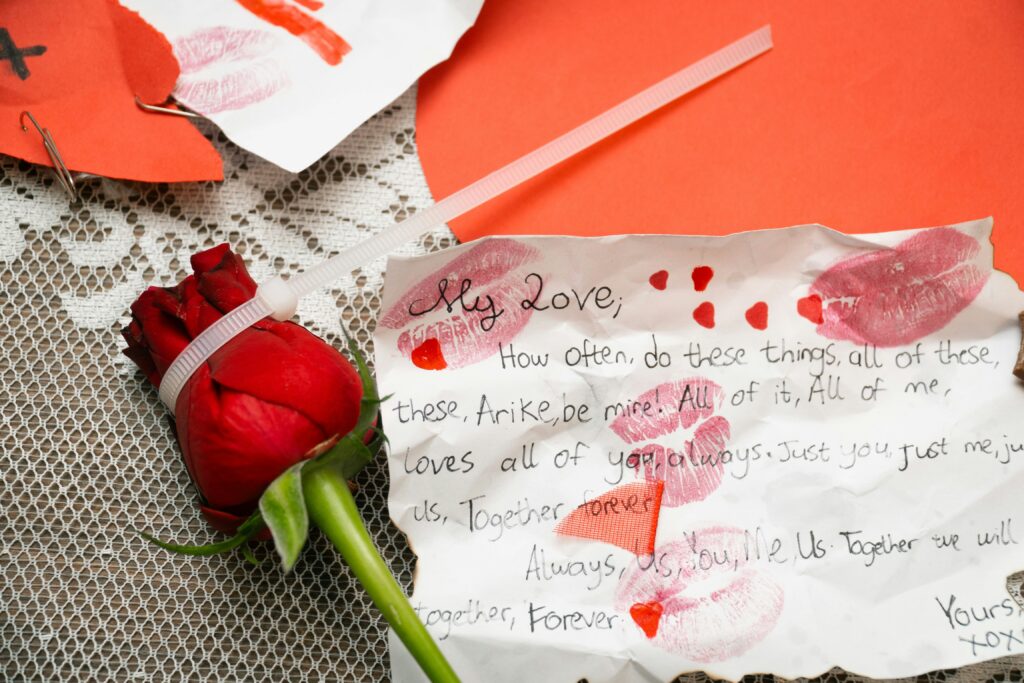 x
My Love;
How often, do these things, all of these,
these, Arike, be mire! All of it, All of me,
loves all of you, always. Just you, just me, ju
us, Together forever
Always, Us, You, Me, Us. Together we will
together, Forever.
Yours,
xox